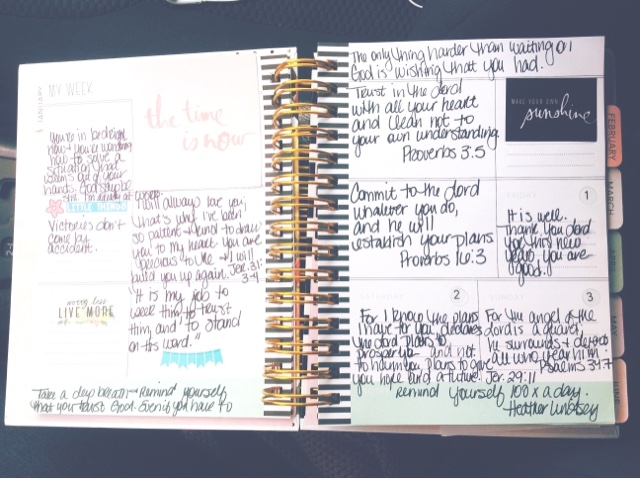 JANUARY
MY WEEK
the time
is now
you're in bed right
now & you're wondering
how to solve a
situation that
seems out of your
hands. God says be
still. I'm already at work.
LITTLE THINGS
Victories don't
come by
accident.
I will always love you;
that's why I've been
so patient & kind to draw
you to my heart. You are
precious to Me & I will
build you up again. Jer. 31:
3-4
worry less
LIVE MORE
"It is my job to
trust
and to stand
on His word."
Take a deep breath & Remind yourself
that you trust God. Even if you have to
The only thing harder than waiting on
God is wishing that you had.
Trust in the Lord
with all your heart
and lean not to
your own understanding.
Proverbs 3:5
MAKE YOUR OWN
sunshine
Commit to the Lord
whatever you do,
and he will
establish your plans
Proverbs 16:3
FRIDAY
1
It is well.
Thank you Lord
for this new
year, you are
good.
SATURDAY
2
For I know the plans
I have for you, declares
the Lord plans to
prosper you and not
to harm you, plans to give
you hope and a future. Jer. 29:11
SUNDAY
3
For the angel of the
Lord is a guard;
he surrounds & defends
all who fear him.
Psalms 34:7
Remind yourself 100 x a day.
Heather Lindsey
FEBRUARY
MARCH
APRIL
MAY
JUNE